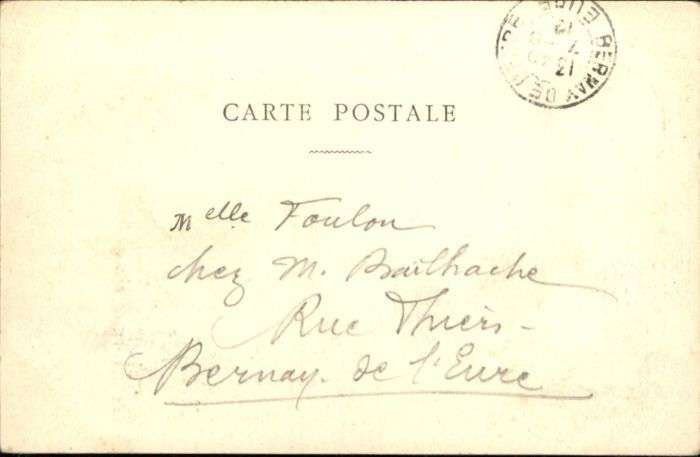 CARTE POSTALE
Melle Foulon
chez M. Bailhache
Rue Thiers -
Bernay. de l'Eure
BERNAY DE L'EURE EURE